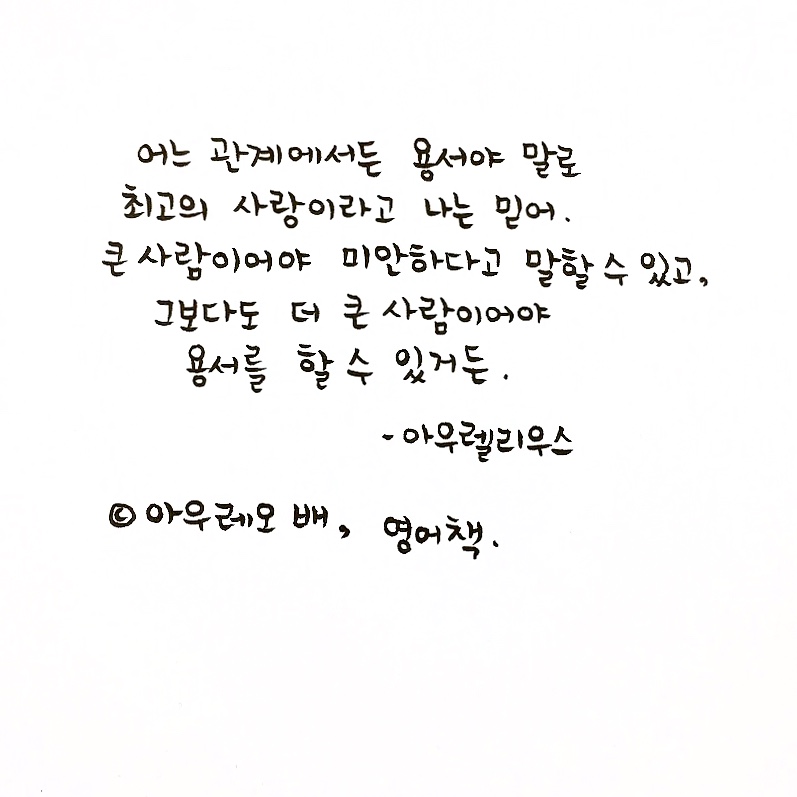 어느 관계에서든 용서야 말로
최고의 사랑이라고 나는 믿어.
큰 사람이어야 미안하다고 말할 수 있고,
그보다도 더 큰 사람이어야
용서를 할 수 있거든.
- 아우렐리우스
© 아우레오 배, 영어책.